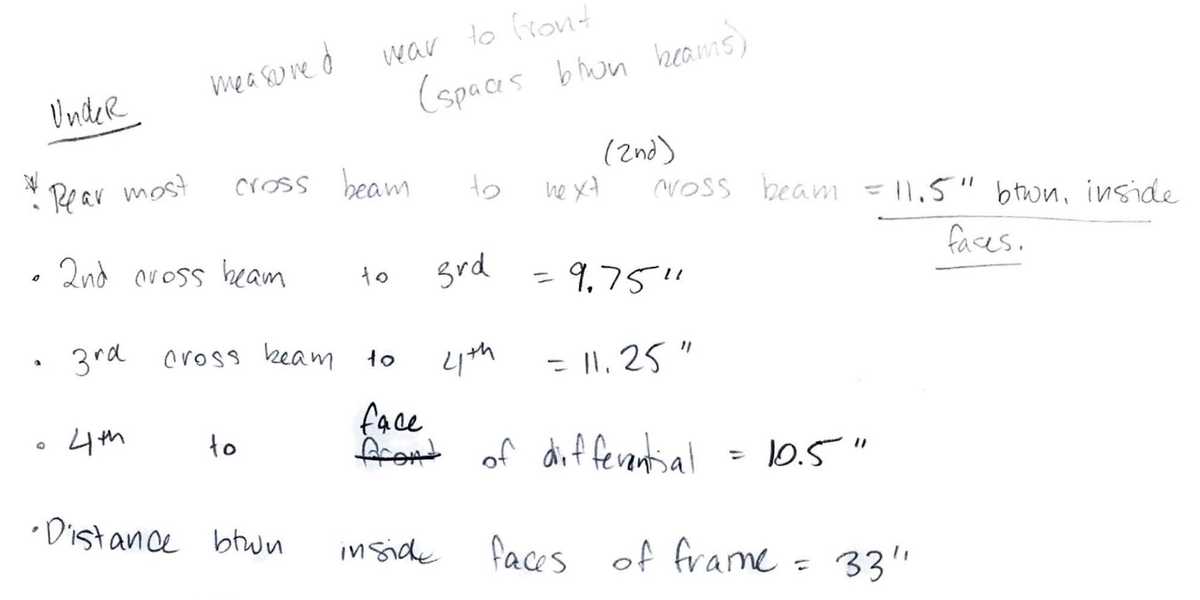 measured rear to front
(spaces btwn beams)
UndeR
(2nd)
* Rear most cross beam to next cross beam = 11.5" btwn. inside
faces.
• 2nd cross beam to 3rd = 9.75"
• 3rd cross beam to 4th = 11.25"
face
• 4th to front of differential = 10.5"
• Distance btwn inside faces of frame = 33"